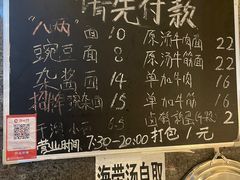 请先付款
"八两"面 10
豌豆面 8
杂酱面 14
豌杂面 15
干溜小面 6.5
原汤牛肉面 22
原汤牛筋面 22
单加牛肉 16
单加牛筋 18
卤鸡蛋 2
营业时间:7:30-20:00 打包1元
海带汤自取